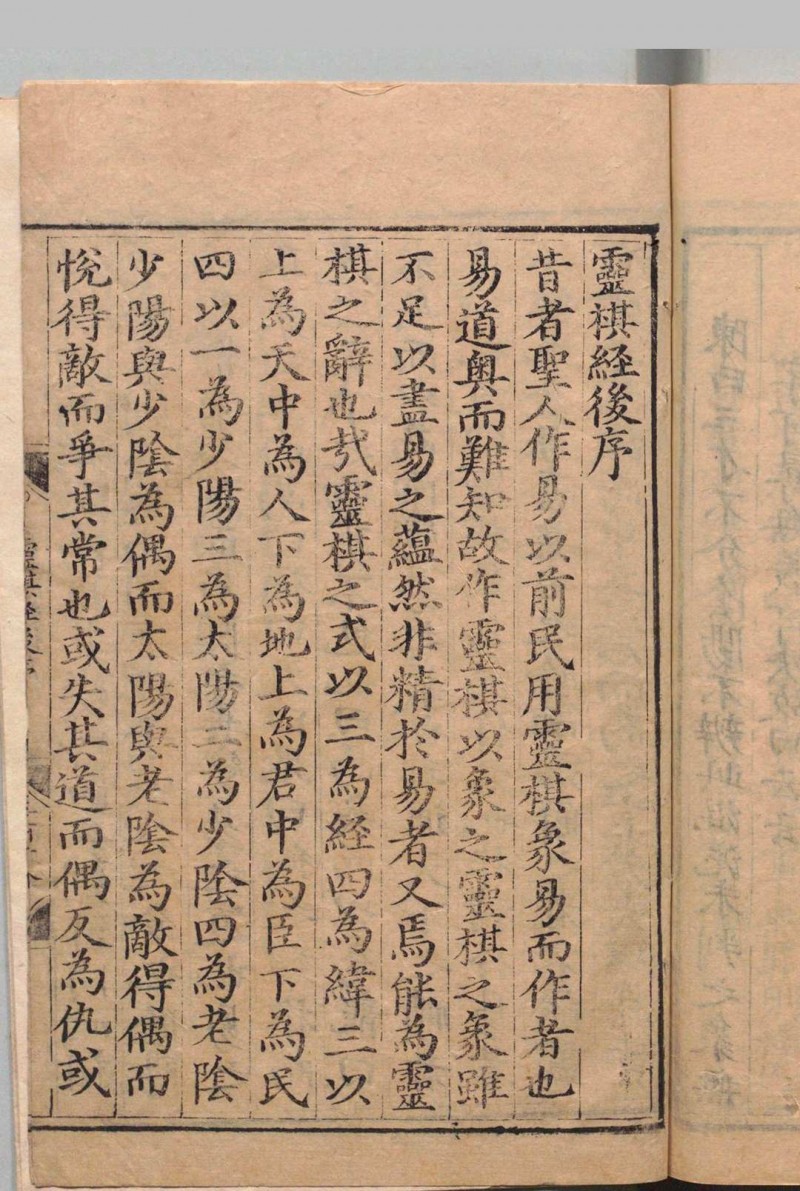 靈棋經後序
昔者聖人作易以前民用靈棋象易而作者也
易道奥而難知故作靈棋以象之靈棋之象雖
不足以盡易之蘊然非精於易者又焉能為靈
棋之辭也㢤靈棋之式以三為經四為緯三以
上為天中為人下為地上為君中為臣下為民
四以一為少陽三為太陽二為少陰四為老陰
少陽與少陰為偶而太陽與老陰為敵得偶而
悅得敵而爭其常也或失其道而偶反為仇或
靈棋經後序